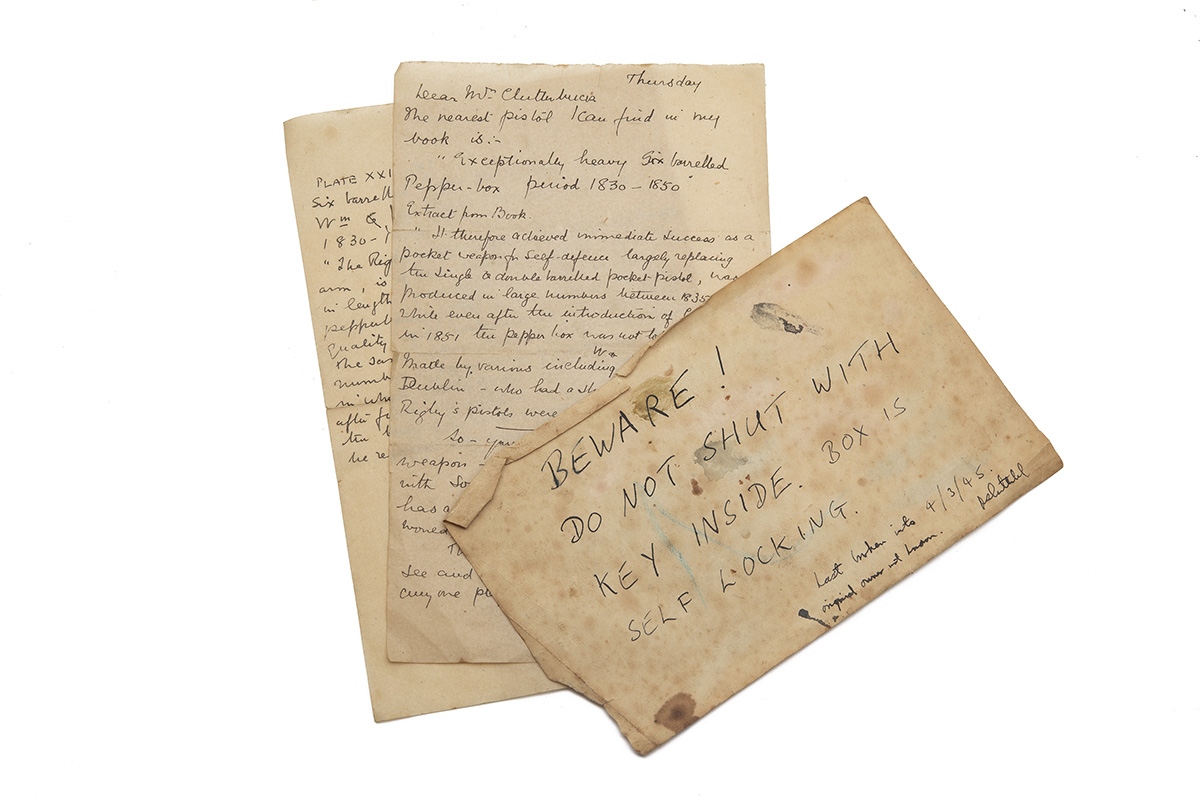 PLATE XXI
Six barrell
Wm &
1830-
"The Rig
arm, is
in length
pepperb
quality
the sa
numb
in wh
after f
the b
he re
Thursday
Dear Mr. Clutterbuck
The nearest pistol I can find in my
book is:-
"Exceptionally heavy Six barrelled
Pepper-box period 1830-1850"
Extract from Book.
"It therefore achieved immediate success as a
pocket weapon for self-defence largely replacing
the single & double barrelled pocket-pistol, was
produced in large numbers between 1835
while even after the introduction of
in 1851 the pepper box was not
Wm
Made by various including
Dublin - who had a
Rigby's pistols were
So - your
weapon -
with So
has a
would
Th
see and
anyone pl
BEWARE!
DO NOT SHUT WITH
KEY INSIDE. BOX IS
SELF LOCKING.
Last broken into 4/3/45.
original owner not known.